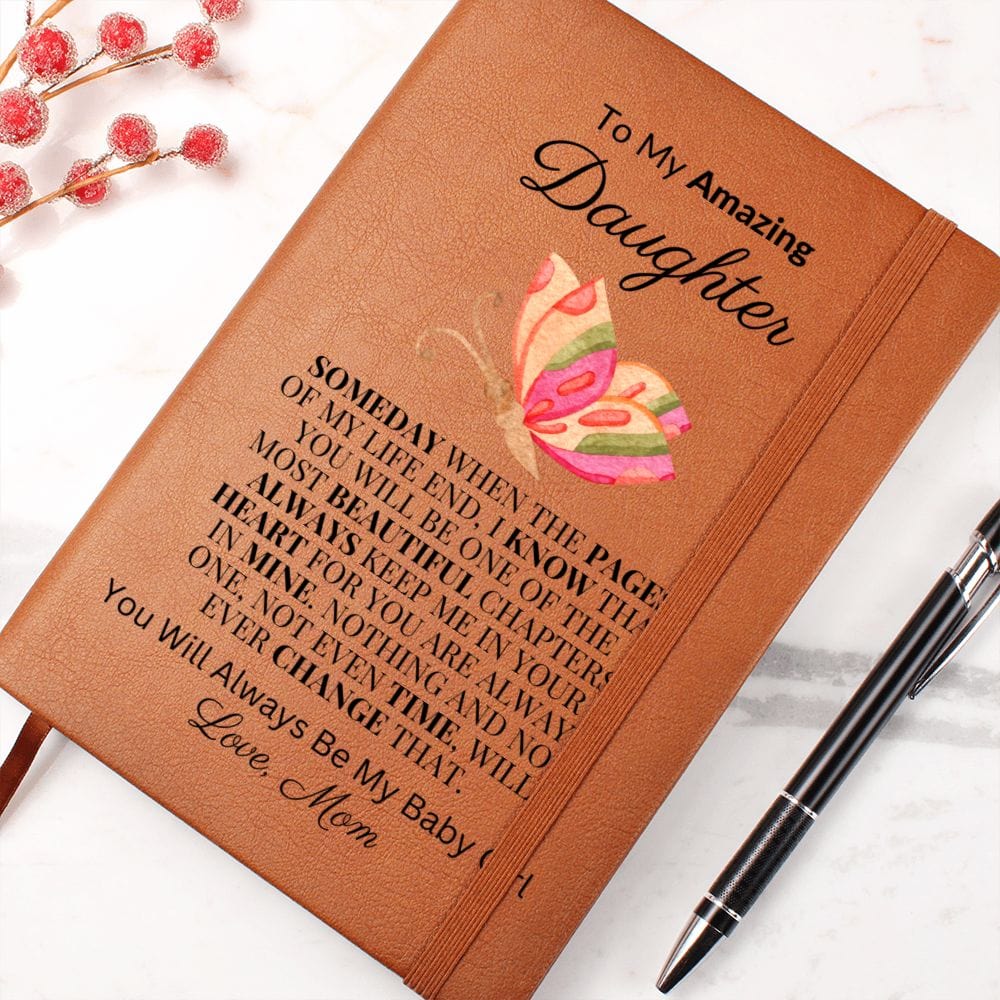 To My Amazing
Daughter
SOMEDAY WHEN THE PAGES
OF MY LIFE END, I KNOW THA
YOU WILL BE ONE OF THE
MOST BEAUTIFUL CHAPTERS
ALWAYS KEEP ME IN YOUR
HEART FOR YOU ARE ALWAY
IN MINE. NOTHING AND NO
ONE, NOT EVEN TIME, WILL
EVER CHANGE THAT.
You Will Always Be My Baby
Love, Mom